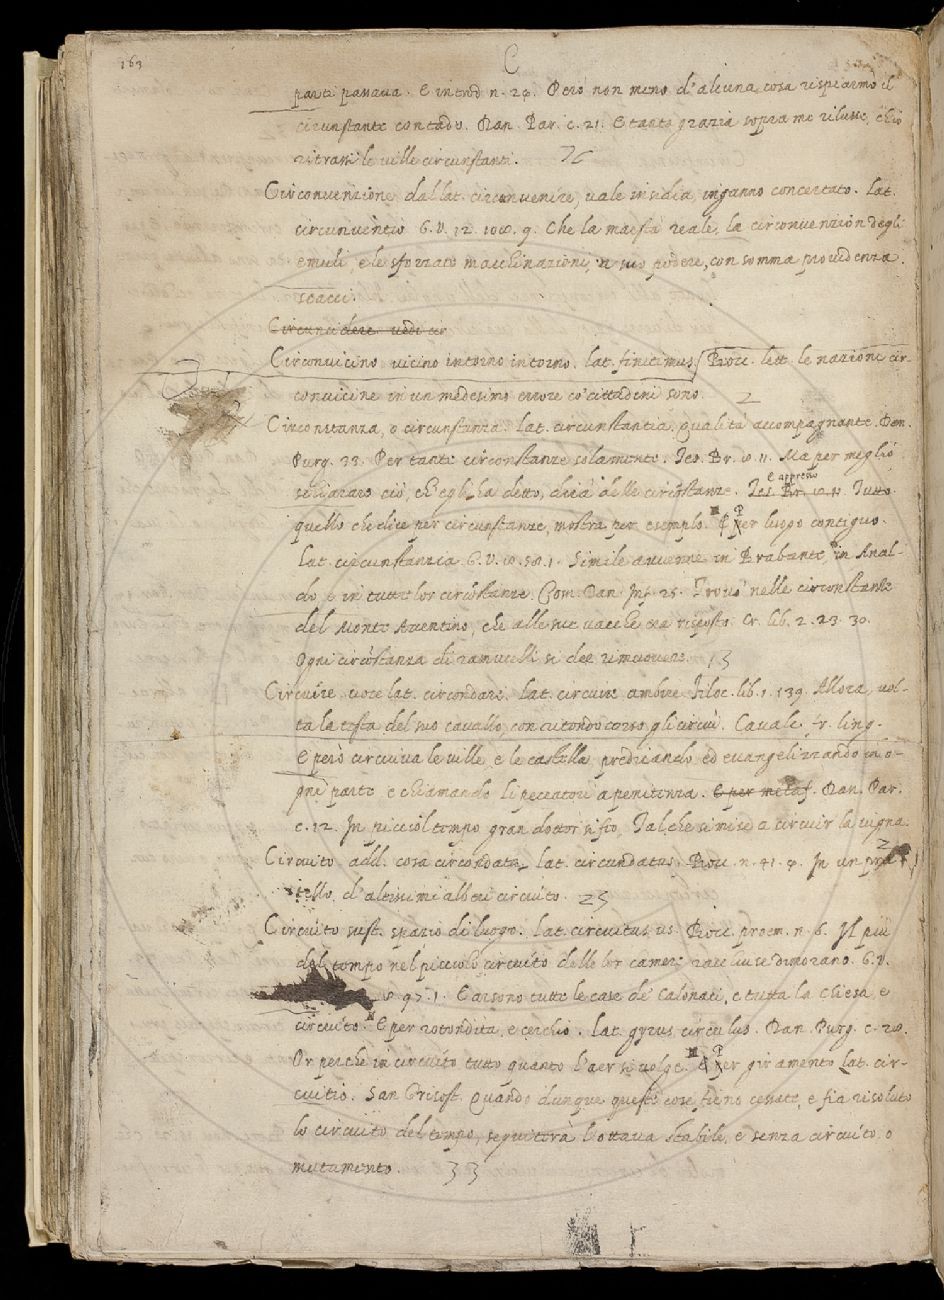 163
C
parti passava. E introd. n. 24. Però non meno d'alcuna cosa risparmiò il
circunstante contado. Dan. Par. c. 21. E tanta grazia sopra me rilusse, ch'io
ritrassi le ville circunstanti. 76
Circonvenzione, dal lat. circonvenire, vale insidia, inganno concertato. Lat.
circunventio. G. V. 12. 108. 9. Che la maestà reale, le circonvenzion degli
emuli, e le sforzate macchinazioni, 'n suo podere, con somma providenza
scacci.
Circuncidere. vedi cir
Circonvicino vicino intorno intorno. lat. finitimus Bocc. lett. le nazioni cir-
convicine in un medesimo errore co' cittadini sono. 2
Circonstanza, o circunstanza. Lat. circunstantia. Qualità accompagnante. Dan.
Purg. 33. Per tante circonstanze solamente. Tes. Br. 8. 11. Ma per meglio
schiarare ciò, ch'egli ha detto, dicia delle circostanze. Tes. Br. 8. 11. Tutto
E appresso
quello che dice per circunstanze, mostra per esemplo. ¶ E per luogo contiguo.
Lat. circunstanzia G. V. 10. 58. 1. Simile avvenne in Brabante, in Anal-
do, e in tutte lor circustanze. Com. Dan. Inf. 25. Trovò nelle circonstanze
del Monte Aventino, che alle sue vacche era risposto. Cr. lib. 2. 23. 30.
Ogni circostanza di ramucelli si dee rimuovere. 13
Circuire. voce lat. circondare. Lat. circuire ambire. Filoc. lib. 1. 139. Allora, vol-
ta la testa del suo cavallo, con ritondo corso gli circuì. Cavalc. fr. ling.
E però circuiva le ville e le castella predicando ed evangelizzando in o-
gni parte e chiamando li peccatori a penitenza. E per metaf. Dan. Par.
c. 12. In picciol tempo gran dottor si feo, Tal che si mise a circuir la vigna.
2
Circuito add. cosa circondata, lat. circundatus. Bocc. n. 41. 4. In un pra-
tello, d'altissimi alberi circuito. 25
Circuito sust. spazio di luogo. Lat. circuitus, us. Bocc. proem. n. 6. Il più
del tempo nel piccolo circuito delle lor camere racchiuse dimorano. G. V.
8. 97. 1. E arsono tutte le case de' Calonaci, e tutta la chiesa, e
circuito. E per rotondità, e cerchio. Lat. gyrus, circulus. Dan. Purg. c. 28.
Or perchè in circuito tutto quanto L'aer si volge. ¶ E per giramento Lat. cir-
cuitio. San Grisost. Quando dunque queste cose fieno cessate, e fia risoluto
lo circuito del tempo, seguiterà l'ottava stabile, e senza circuito, o
mutamento. 33